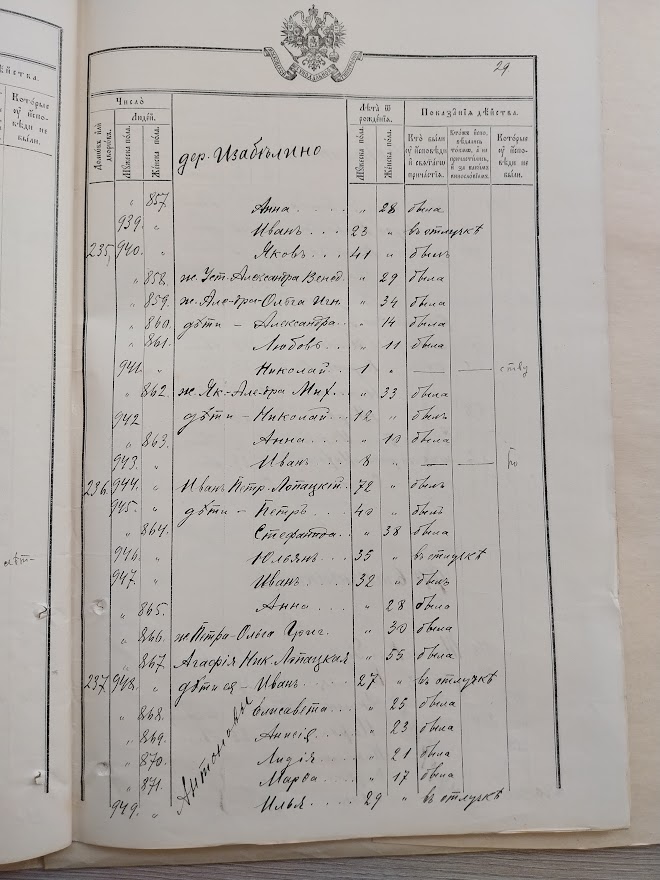 29
Число
Людей.
Домовъ или дворовъ.
Мꙋжеска пола.
Женска пола.
дер. Изабѣлино
Лѣта ѿ рожденїѧ.
Мꙋжеска пола.
Женска пола.
Показанїѧ дѣйства.
Кто были ꙋ исповѣди и свѧтагѡ причастїѧ.
Которые ꙋ исповѣди не были.
" 857. Анна . . . . " 28 была
939. " Иванъ . . . 23 " въ отлучкѣ
235. 940. " Яковъ . . . 41 " былъ
" 858. ж. Уст.-Александра Венед. " 29 была
" 859. ж. Але-дра-Ольга Игн. " 34 была
" 860. дѣти – Александра. . " 14 была
" 861. Любовь. . . " 11 была
941. " Николай . . 1 " — —
" 862. ж. Як-Але-дра Мих. . " 33 была
942 дѣти – Николай . . . 12 " былъ
" 863. Анна . . . . " 10 была
943. " Иванъ . . . 8 " — —
236. 944. " Иванъ Петр. Лопацкій. 72 " былъ
945. " дѣти – Петръ. . . 40 " былъ
" 864. Стефанида . . " 38 была
946. " Юльянъ . . 35 " въ отлучкѣ
947. " Иванъ . . . 32 " былъ
" 865. Анна . . . " 28 была
" 866. ж. Петра-Ольга Григ. " 30 была
" 867. Агафія Ник. Лопацкая " 55 была
237 948. " дѣти ея – Иванъ . . 27 " въ отлучкѣ
" 868. Елисавета . . . " 25 была
" 869. " 23 была
" 870. Лидія . . . " 21 была
" 871. Марѳа . . . " 17 была
949. " Илья . . . . 29 " въ отлучкѣ
Антоновы